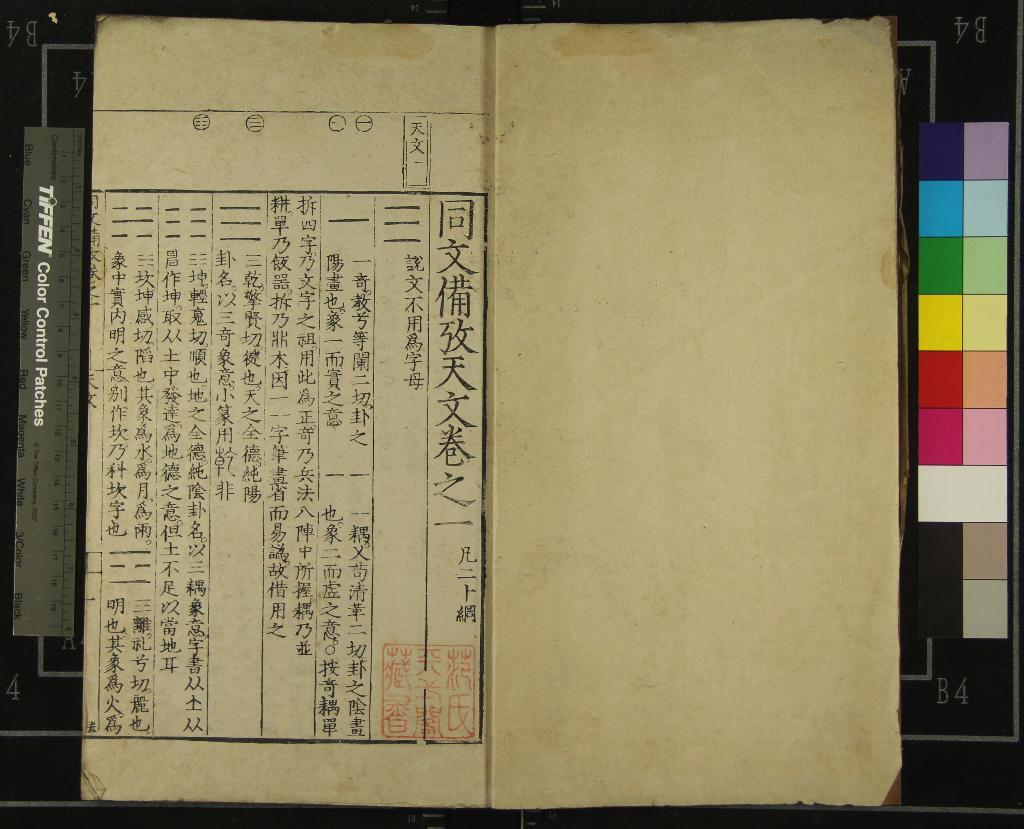 天文一
同文備攷天文卷之一 凡二十綱
說文不用為字母
一奇敎兮等闌二切卦之
陽畫也象一而實之意
一耦乂茍清革二切卦之陰畫
也象二而虛之意○按奇耦單
拆四字乃文字之祖用此為正奇乃兵法八陣中所握耦乃並
耕單乃飯器拆乃淅木因一一字筆畫省而易譌故借用之
三乾擎賢切徤也天之全德純陽
卦名以三奇象意小篆用乾非
三坤輕寬切順也地之全德純陰卦名以三耦象意字書从土从
昌作坤取从土中發達為地德之意但土不足以當地耳
三坎坤感切陷也其象為水為月為雨
象中實內明之意別作坎乃科坎字也
三離礼兮切麗也
明也其象為火為
同文備攷卷之一
天文
一
TIFFEN Color Control Patches
© The Tiffen Company, 2007
Centimetres
Inches
Blue
Cyan
Green
Yellow
Red
Magenta
White
3/Color
Black
B4
B4
B4
4
4
A